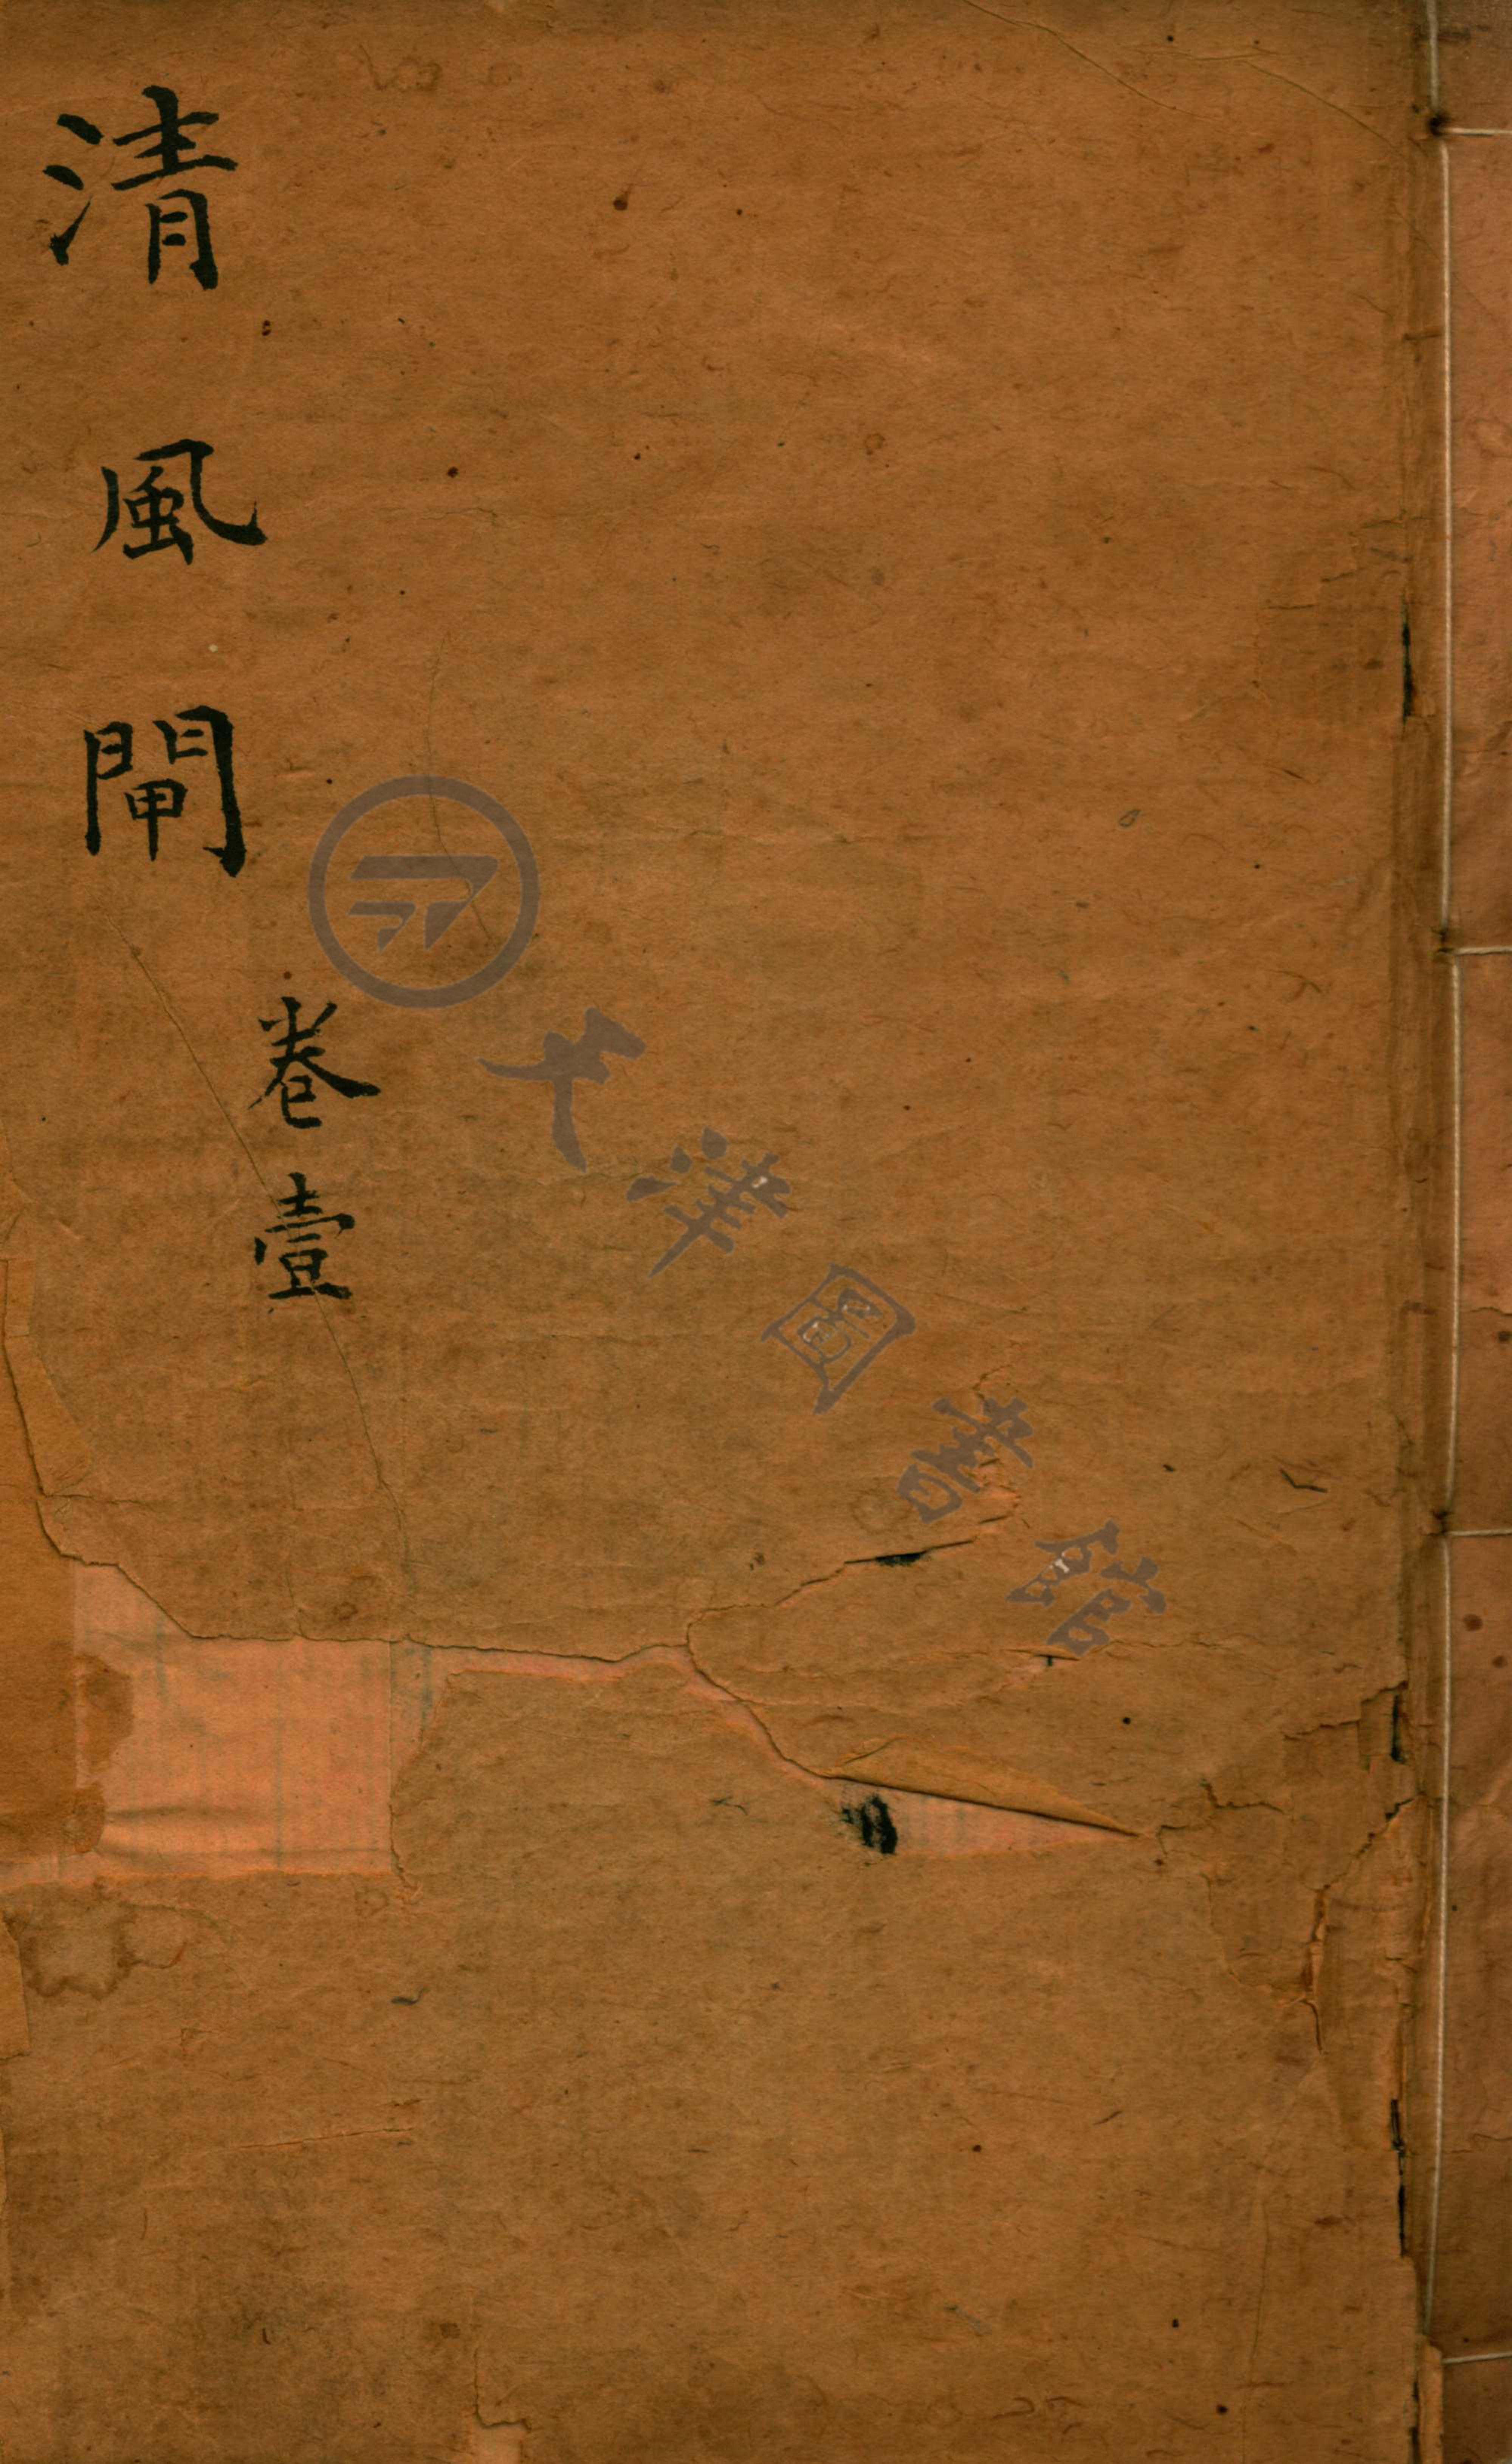 清風閘
卷壹
天津圖書館